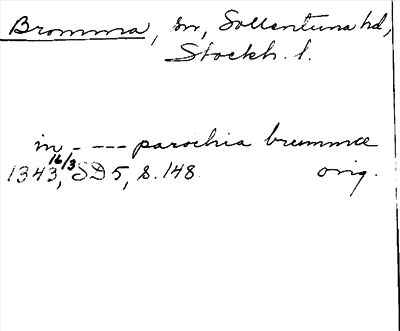 Bromma, sn, Sollentuna hd,
Stockh. l.
in - --- parochia brummæ
16/3
1343, SD 5, s. 148. orig.